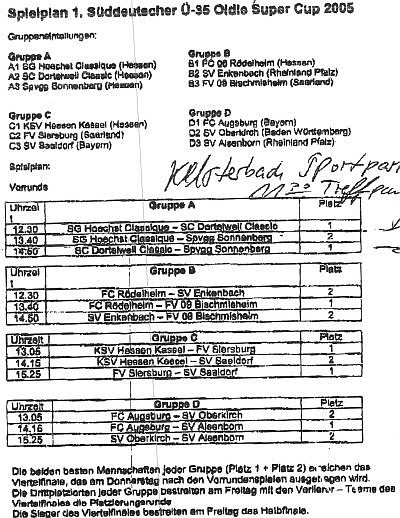 Spielplan 1. Süddeutscher Ü-35 Oldie Super Cup 2005
Gruppeneinteilungen:
Gruppe A
A1 SG Hoechst Classique (Hessen)
A2 SC Dortelweil Classic (Hessen)
A3 Spvgg Sonnenberg (Hessen)
Gruppe B
B1 FC Rödelheim (Hessen)
B2 SV Enkenbach (Rheinland Pfalz)
B3 FV 09 Bischmisheim (Saarland)
Gruppe C
C1 KSV Hessen Kassel (Hessen)
C2 FV Siersburg (Saarland)
C3 SV Saaldorf (Bayern)
Gruppe D
D1 FC Augsburg (Bayern)
D2 SV Oberkirch (Baden Württemberg)
D3 SV Alsenborn (Rheinland Pfalz)
Spielplan:
Kelsterbach Sportpar
Vorrunde
11 30 Treffpun
Uhrzei Gruppe A Platz
t
12.30 SG Hoechst Classique – SC Dortelweil Classic 1
13.40 SG Hoechst Classique – Spvgg Sonnenberg 2
14.50 SC Dortelweil Classic – Spvgg Sonnenberg 1
Uhrzei Gruppe B Platz
t
12.30 FC Rödelheim – SV Enkenbach 2
13.40 FC Rödelheim – FV 09 Bischmisheim 1
14.50 SV Enkenbach – FV 09 Bischmisheim 2
Uhrzeit Gruppe C Platz
13.05 KSV Hessen Kassel – FV Siersburg 1
14.15 KSV Hessen Kassel – SV Saaldorf 2
15.25 FV Siersburg – SV Saaldorf 1
Uhrzeit Gruppe D Platz
13.05 FC Augsburg – SV Oberkirch 2
14.15 FC Augsburg – SV Alsenborn 1
15.25 SV Oberkirch – SV Alsenborn 2
Die beiden besten Mannschaften jeder Gruppe (Platz 1 + Platz 2) erreichen das
Viertelfinale, das am Donnerstag nach den Vorrundenspielen ausgetragen wird.
Die Drittplatzierten jeder Gruppe bestreiten am Freitag mit den Verlierer – Teams des
Viertelfinales die Platzierungsrunde
Die Sieger des Viertelfinales bestreiten am Freitag das Halbfinale.